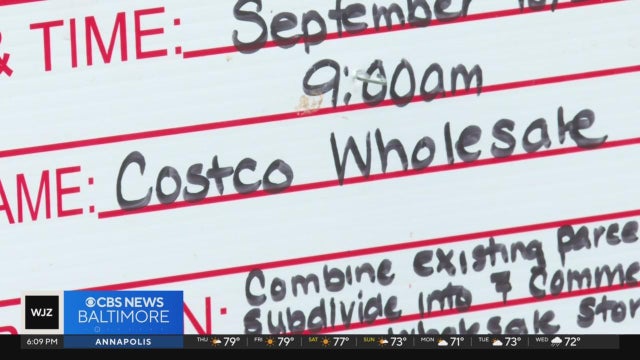 & TIME: September
9:00am
AME: Costco Wholesale
Combine existing parce
N: subdivide into 7 Comme
wholesale stor
WJZ
CBS NEWS
BALTIMORE
6:09 PM ANNAPOLIS THU 79° FRI 79° SAT 77° SUN 73° MON 71° TUE 73° WED 72°